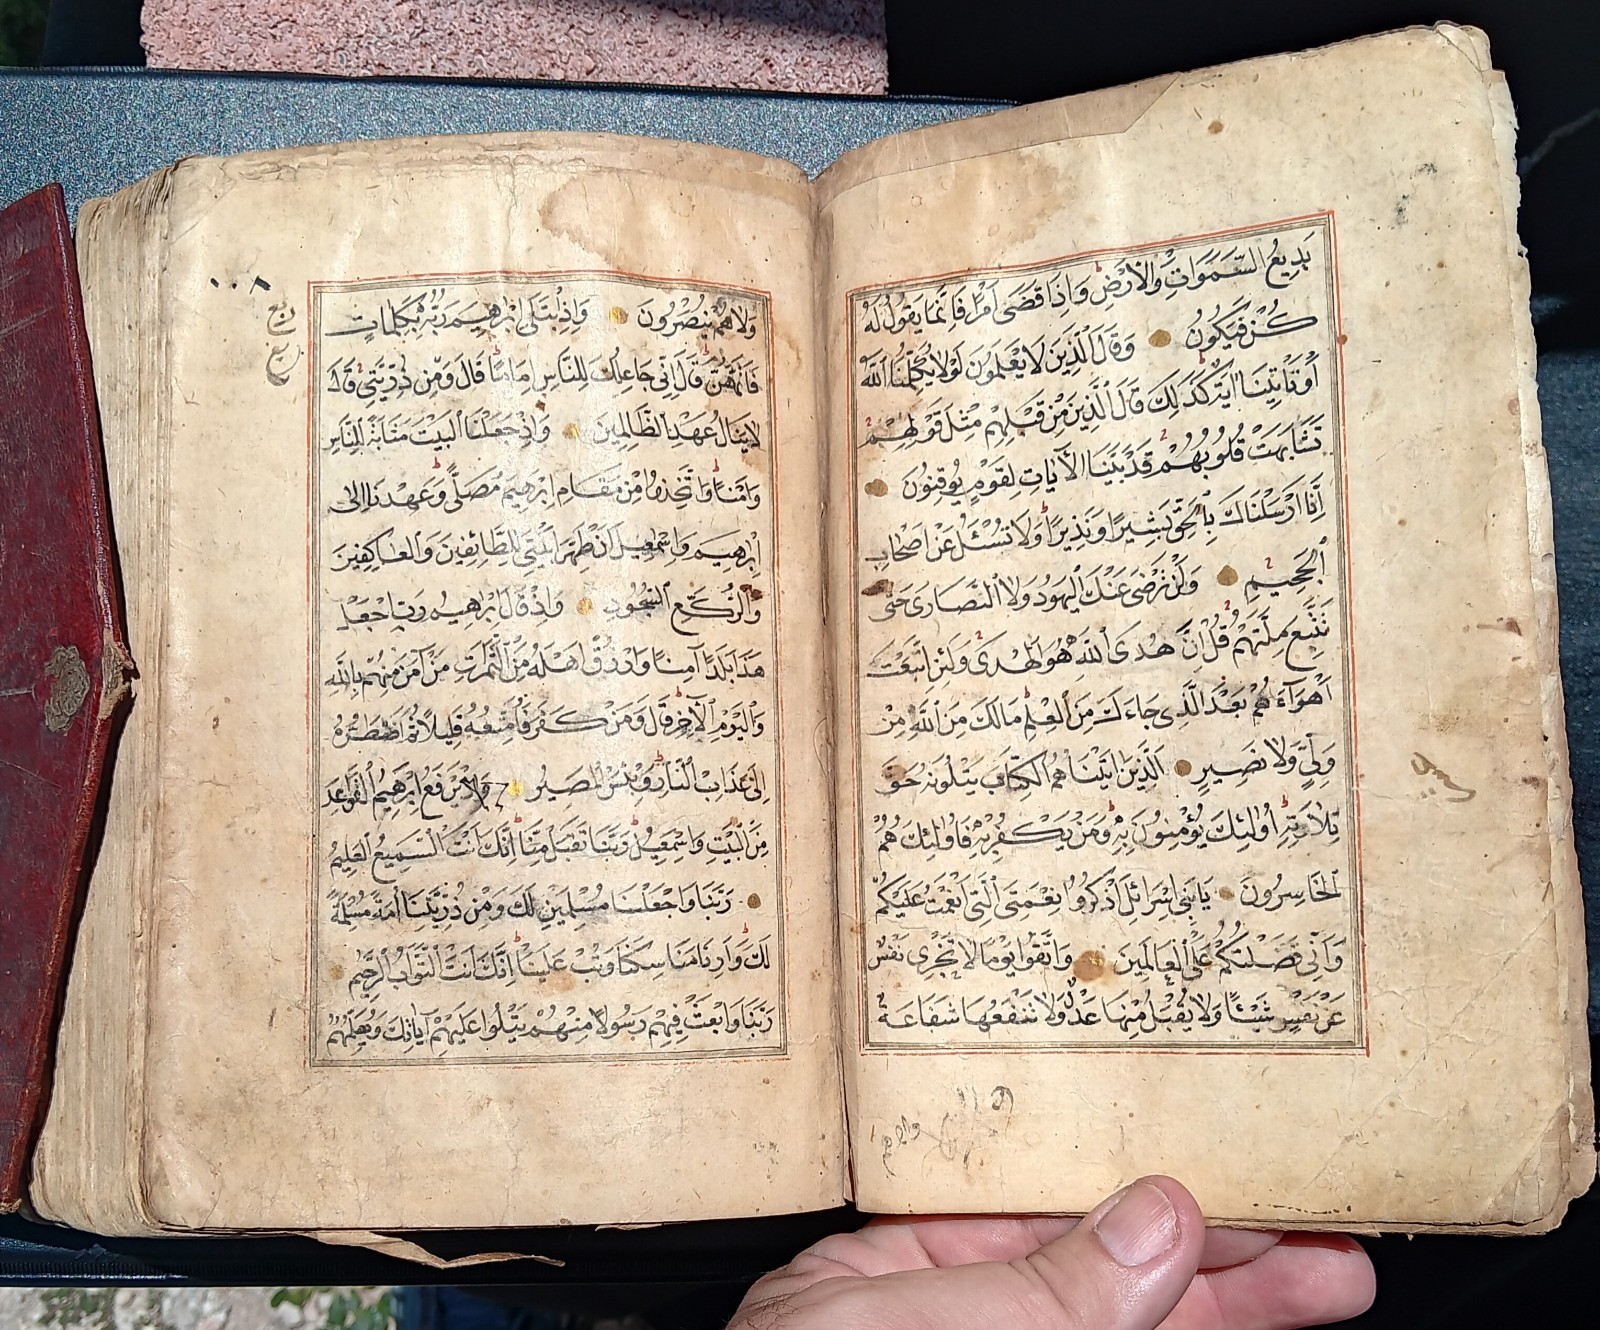 بَدِيعُ السَّمَوَاتِ وَالْأَرْضِ وَإِذَا قَضَى أَمْرًا فَإِنَّمَا يَقُولُ لَهُ
كُنْ فَيَكُونُ وَقَالَ الَّذِينَ لَا يَعْلَمُونَ لَوْلَا يُكَلِّمُنَا اللَّهُ
أَوْ تَأْتِينَا آيَةٌ كَذَلِكَ قَالَ الَّذِينَ مِنْ قَبْلِهِمْ مِثْلَ قَوْلِهِمْ
تَشَابَهَتْ قُلُوبُهُمْ قَدْ بَيَّنَّا الْآيَاتِ لِقَوْمٍ يُوقِنُونَ
إِنَّا أَرْسَلْنَاكَ بِالْحَقِّ بَشِيرًا وَنَذِيرًا وَلَا تُسْئَلُ عَنْ أَصْحَابِ
الْجَحِيمِ وَلَنْ تَرْضَى عَنْكَ الْيَهُودُ وَلَا النَّصَارَى حَتَّى
تَتَّبِعَ مِلَّتَهُمْ قُلْ إِنَّ هُدَى اللَّهِ هُوَ الْهُدَى وَلَئِنِ اتَّبَعْتَ
أَهْوَآءَهُمْ بَعْدَ الَّذِي جَاءَكَ مِنَ الْعِلْمِ مَا لَكَ مِنَ اللَّهِ مِنْ
وَلِيٍّ وَلَا نَصِيرٍ الَّذِينَ آتَيْنَاهُمُ الْكِتَابَ يَتْلُونَهُ حَقَّ
تِلَاوَتِهِ أُولَئِكَ يُؤْمِنُونَ بِهِ وَمَنْ يَكْفُرْ بِهِ فَأُولَئِكَ هُمُ
الْخَاسِرُونَ يَا بَنِي إِسْرَائِلَ اذْكُرُوا نِعْمَتِيَ الَّتِي أَنْعَمْتُ عَلَيْكُمْ
وَأَنِّي فَضَّلْتُكُمْ عَلَى الْعَالَمِينَ وَاتَّقُوا يَوْمًا لَا تَجْزِي نَفْسٌ
عَنْ نَفْسٍ شَيْئًا وَلَا يُقْبَلُ مِنْهَا عَدْلٌ وَلَا تَنْفَعُهَا شَفَاعَةٌ
ولاهم
١٠٨
ربع
وَلَا هُمْ يُنْصَرُونَ وَإِذِ ابْتَلَى إِبْرَهِيمَ رَبُّهُ بِكَلِمَاتٍ
فَأَتَمَّهُنَّ قَالَ إِنِّي جَاعِلُكَ لِلنَّاسِ إِمَامًا قَالَ وَمِنْ ذُرِّيَّتِي قَالَ
لَا يَنَالُ عَهْدِي الظَّالِمِينَ وَإِذْ جَعَلْنَا الْبَيْتَ مَثَابَةً لِلنَّاسِ
وَأَمْنًا وَاتَّخِذُوا مِنْ مَقَامِ إِبْرَهِيمَ مُصَلًّى وَعَهِدْنَا إِلَى
إِبْرَهِيمَ وَإِسْمَعِيلَ أَنْ طَهِّرَا بَيْتِيَ لِلطَّائِفِينَ وَالْعَاكِفِينَ
وَالرُّكَّعِ السُّجُودِ وَإِذْ قَالَ إِبْرَهِيمُ رَبِّ اجْعَلْ
هَذَا بَلَدًا آمِنًا وَارْزُقْ أَهْلَهُ مِنَ الثَّمَرَتِ مَنْ آمَنَ مِنْهُمْ بِاللَّهِ
وَالْيَوْمِ الْآخِرِ قَالَ وَمَنْ كَفَرَ فَأُمَتِّعُهُ قَلِيلًا ثُمَّ أَضْطَرُّهُ
إِلَى عَذَابِ النَّارِ وَبِئْسَ الْمَصِيرُ وَإِذْ يَرْفَعُ إِبْرَهِيمُ الْقَوَاعِدَ
مِنَ الْبَيْتِ وَإِسْمَعِيلُ رَبَّنَا تَقَبَّلْ مِنَّا إِنَّكَ أَنْتَ السَّمِيعُ الْعَلِيمُ
رَبَّنَا وَاجْعَلْنَا مُسْلِمَيْنِ لَكَ وَمِنْ ذُرِّيَّتِنَا أُمَّةً مُسْلِمَةً
لَكَ وَأَرِنَا مَنَاسِكَنَا وَتُبْ عَلَيْنَا إِنَّكَ أَنْتَ التَّوَّابُ الرَّحِيمُ
رَبَّنَا وَابْعَثْ فِيهِمْ رَسُولًا مِنْهُمْ يَتْلُوا عَلَيْهِمْ آيَاتِكَ وَيُعَلِّمُهُمُ